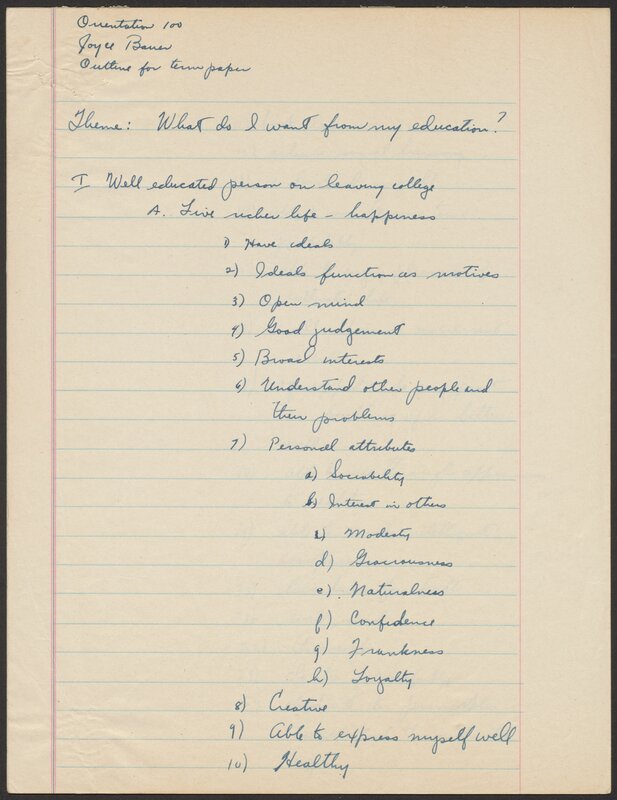 Orientation 100
Joyce Bauer
Outline for term paper
Theme: What do I want from my education?
I Well educated person on leaving college
A. Live richer life - happiness
1) Have ideals
2) Ideals function as motives
3) Open mind
4) Good judgement
5) Broad interests
6) Understand other people and
their problems
7) Personal attributes
a) Sociability
b) Interest in others
c) Modesty
d) Graciousness
e). Naturalness
f) Confidence
g) Frankness
h) Loyalty
8) Creative
9) Able to express myself well
10) Healthy